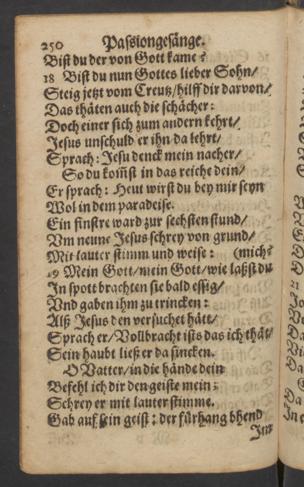 250 Passiongesänge.
Bist du der von Gott kame?
18 Bist du nun Gottes lieber Sohn/
Steig jetzt vom Creutz/hilff dir darvon/
Das thäten auch die schächer:
Doch einer sich zum andern kehrt/
Jesus unschuld er ihn da lehrt/
Sprach: Jesu denck mein nacher/
So du kom̃st in das reiche dein/
Er sprach: Heut wirst du bey mir seyn
Wol in dem paradeise.
Ein finstre ward zur sechsten stund/
Vm neune Jesus schrey von grund/
Mit lauter stimm und weise: (mich?
19 Mein Gott/mein Gott/wie laßst du
In spott brachten sie bald essig/
Vnd gaben ihm zu trincken:
Alß Jesus den versuchet hätt/
Sprach er/Vollbracht ists das ich thät/
Sein haubt ließ er da sincken.
O Vatter/in die hände dein
Befehl ich dir den geiste mein:
Schrey er mit lauter stimme.
Gab auf sein geist: der fürhang bhend